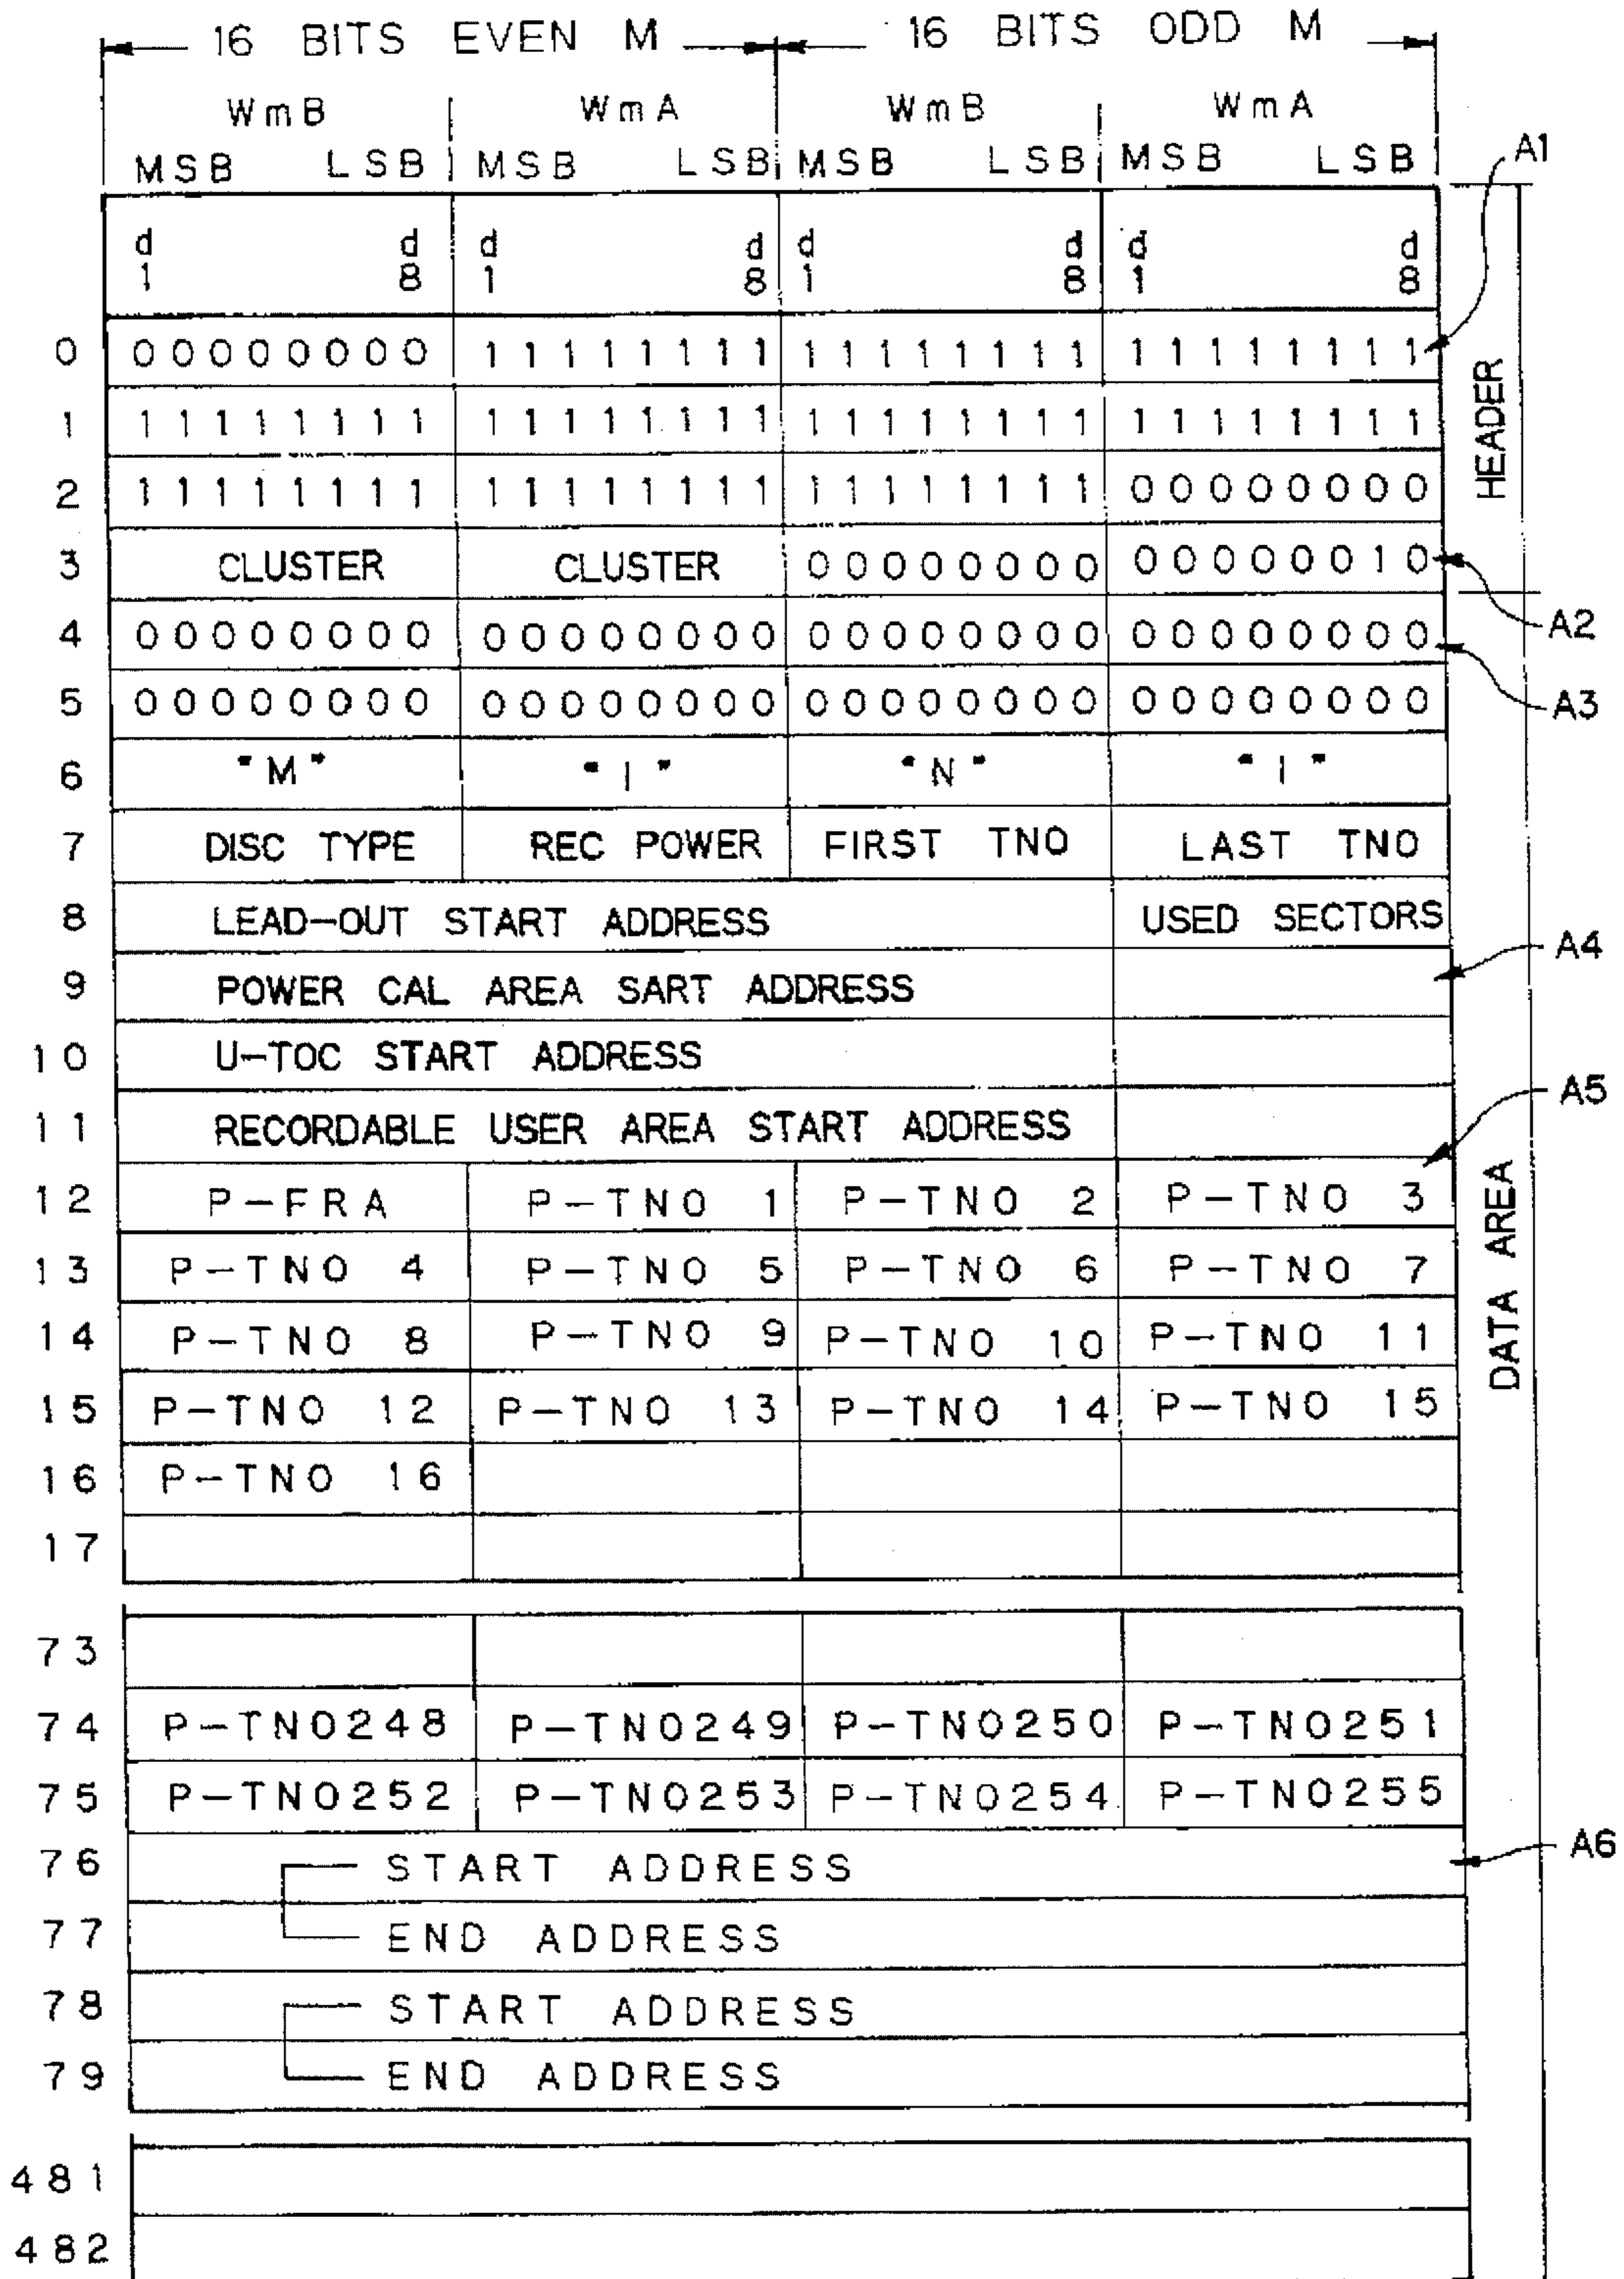 16 BITS EVEN M 16 BITS ODD M
WmB WmA WmB WmA
MSB LSB MSB LSB MSB LSB MSB LSB
A1
d d d d d d d d
1 8 1 8 1 8 1 8
0 00000000 11111111 11111111 11111111
1 11111111 11111111 11111111 11111111
2 11111111 11111111 11111111 00000000
HEADER
3 CLUSTER CLUSTER 00000000 00000010
A2
4 00000000 00000000 00000000 00000000
A3
5 00000000 00000000 00000000 00000000
6 "M" "I" "N" "I"
7 DISC TYPE REC POWER FIRST TNO LAST TNO
8 LEAD-OUT START ADDRESS USED SECTORS
A4
9 POWER CAL AREA SART ADDRESS
10 U-TOC START ADDRESS
A5
11 RECORDABLE USER AREA START ADDRESS
12 P-FRA P-TNO 1 P-TNO 2 P-TNO 3
13 P-TNO 4 P-TNO 5 P-TNO 6 P-TNO 7
DATA AREA
14 P-TNO 8 P-TNO 9 P-TNO 10 P-TNO 11
15 P-TNO 12 P-TNO 13 P-TNO 14 P-TNO 15
16 P-TNO 16
17
73
74 P-TNO248 P-TNO249 P-TNO250 P-TNO251
75 P-TNO252 P-TNO253 P-TNO254 P-TNO255
A6
76 START ADDRESS
77 END ADDRESS
78 START ADDRESS
79 END ADDRESS
481
482